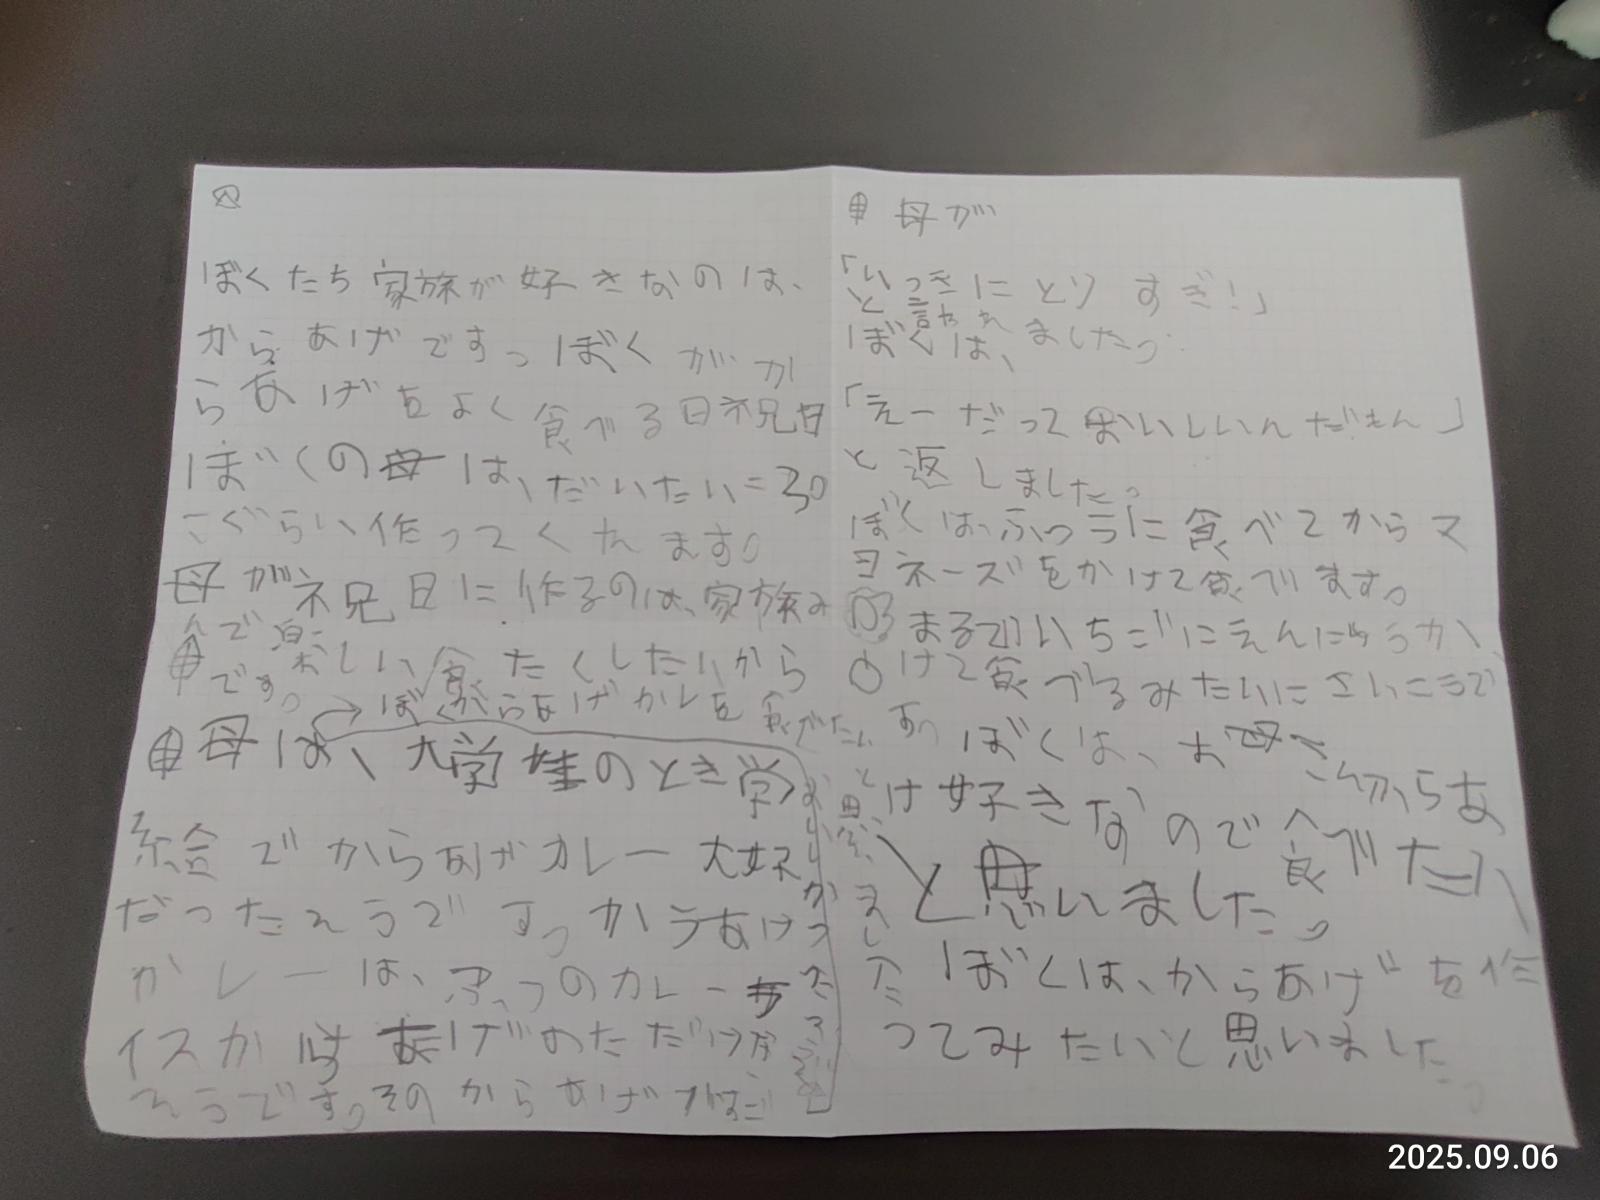 ぼくたち家族が好きなのは、
からあげです。ぼくがか
らあげをよく食べる日祝日
ぼくの母は、だいたい=30
こぐらい作ってくれます。
母が祝日に作るのは、家族み
んで楽しい食たくしたいから
です。
ぼくからあげカレを食べたい
と思いました
母は、大学生のとき学
絵でからあがカレー大好
だったそうです。からあけ
カレーは、ふつのカレー
イスか
げのただけな
そうです。そのからあげがすご
おいしかったそうです
母が
「いっきにとりすぎ!」
と言われました。
ぼくは、
「えーだっておいしいんだもん」
と返しました。
ぼくは、ふつうに食べてからマ
ヨネーズをかけて食べます。
まるでいちごにえんにゅうか
けて食べるみたいにさいこうで
す。ぼくは、お母
け好きなので、からあ
食べたい
と思いました。
ぼくは、からあげを作
ってみたいと思いました。
2025.09.06